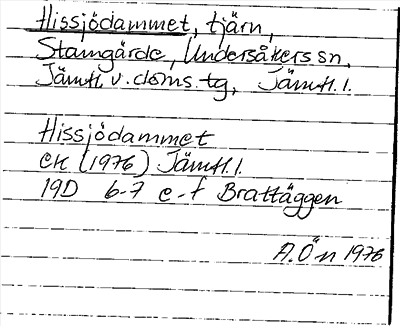 Hissjödammet, tjärn,
Stamgärde, Undersåkers sn,
Jämtl. v. doms. tg, Jämtl. l.
Hissjödammet
ek (1976) Jämtl. l.
19D 6-7 e-f Brattäggen
A. Ö-n 1976